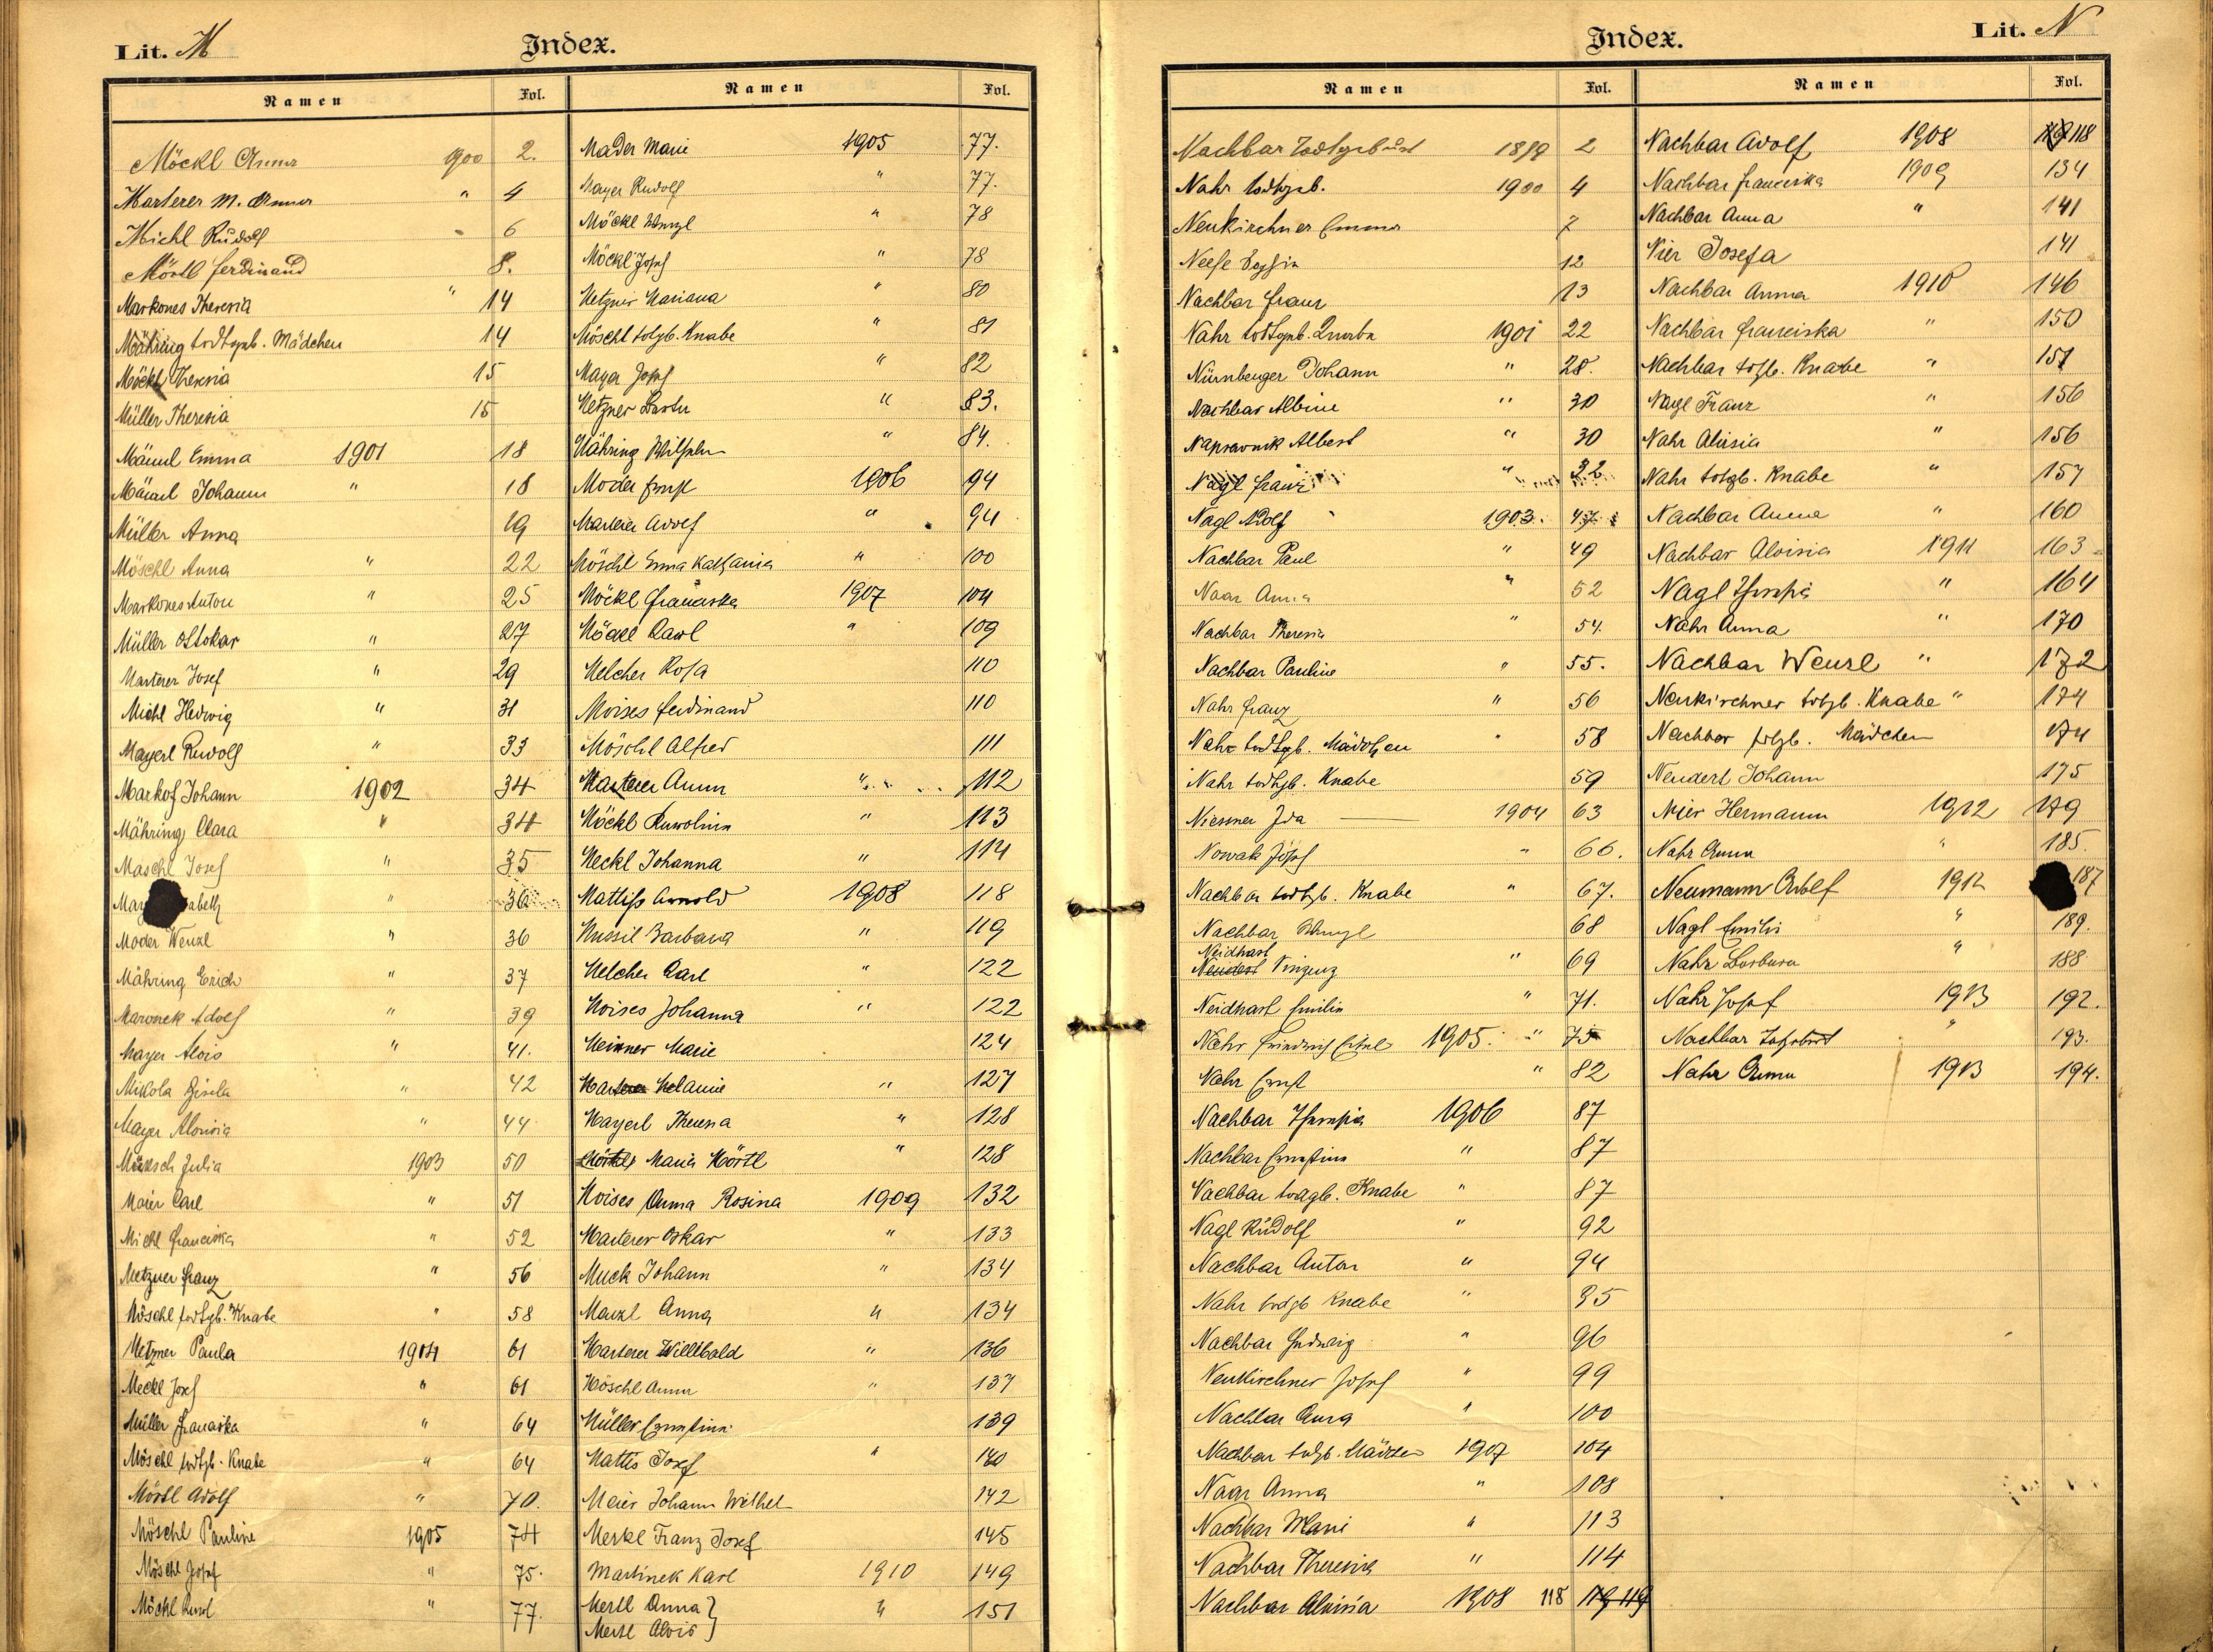 Lit. M
Index.
Namen Fol.
Möckl Anna 1900 2.
Marterer M. Anna " 4
Michl Rudolf 6
Mörtl Ferdinand 8.
Markones Theresia " 14
Mähring todtgeb. Mädchen 14
Möckl Theresia 15
Müller Theresia 15
Männl Emma 1901 18
Männl Johann " 18
Müller Anna 19
Möschl Anna " 22
Markones Anton " 25
Müller Ottokar " 27
Marterer Josef " 29
Michl Hedwig " 31
Mayerl Rudolf " 33
Markof Johann 1902 34
Mähring Clara " 34
Maschl Josef " 35
May abeth " 36
Moder Wenzl " 36
Mähring Erich " 37
Maronek Adolf " 39
Mayer Alois " 41.
Mikola Gisela " 42
Mayer Aloisia " 44
Julia 1903 50
Maier Carl " 51
Michl Franciska " 52
Metzner Franz " 56
Möschl todtgb. Knabe " 58
Metzner Paula 1904 61
Meckl Josef " 61
Müller Franciska " 64
Möschl todtgb. Knabe " 64
Mörtl Adolf " 70.
Möschl Pauline 1905 74
Möschl Josef " 75.
Möckl " 77.
Namen Fol.
Mader Marie 1905 77.
Mayer Rudolf " 77.
Möckl Wenzl " 78
Möckl Josef " 78
Metzner Mariana " 80
Möschl totgb. Knabe " 81
Mayer Josef " 82
Metzner " 83.
Mähring Wilhelm " 84.
Moder Ernst 1906 94
Marterer Adolf " 94
Möschl Anna Katharina " 100
Möckl Franciska 1907 104
Möckl Karl " 109
Melcher Rosa 110
Moises Ferdinand 110
Möschl Alfred 111
Marterer Anna " 112
Möckl Karolina " 113
Meckl Johanna " 114
Mattiss Arnold 1908 118
Mussil Barbara " 119
Melcher Carl " 122
Moises Johanna " 122
Meixner Marie 124
Marterer Melanie " 127
Mayerl Theresia " 128
Maria Mörtl " 128
Moises Anna Rosina 1909 132
Marterer Oskar " 133
Muck Johann " 134
Marzl Anna " 134
Marterer Willibald " 136
Möschl Anna " 137
Müller Ernestine 139
Mattis Josef " 140
Meier Johann Wilhel 142
Merkl Franz Josef 145
Martinek Karl 1910 149
Mertl Anna } " 151
Mertl Alois }
Index.
Lit. N
Namen Fol.
Nachbar Todtgeburt 1899 2
Nahr todtgeb. 1900 4
Neukirchner Emma 7
Neese Sofia 12
Nachbar Franz 13
Nahr todtgeb. Knabe 1901 22
Nürnberger Johann " 28.
Nachbar Albine " 30
Naprawnik Albert " 30
Nagl Franz " 32
Nagl Adolf 1903. 47
Nachbar Paul " 49
Naar Anna " 52
Nachbar Theresia " 54.
Nachbar Pauline " 55.
Nahr Franz " 56
Nahr todtgb. Mädchen " 58
Nahr todtgb. Knabe 59
Niessner Ida 1904 63
Nowak Josef " 66.
Nachbar todtgb. Knabe " 67.
Nachbar Wenzl 68
Neidhart
Neudert Vinzenz " 69
Neidhart Emilie " 71.
Nahr Friedrich 1905. " 75
Nahr Ernst " 82
Nachbar Theresia 1906 87
Nachbar Ernestine " 87
Nachbar todtgb. Knabe " 87
Nagl Rudolf " 92
Nachbar Anton " 94
Nahr todtgb Knabe " 95
Nachbar Hedwig " 96
Neukirchner Josef " 99
Nachbar Anna " 100
Nachbar totgb. Mädchen 1907 104
Naar Anna " 108
Nachbar Marie " 113
Nachbar Theresia " 114
Nachbar Aloisia 1908 118 119 119
Namen Fol.
Nachbar Adolf 1908 119 118
Nachbar Franciska 1909 134
Nachbar Anna " 141
Nier Josefa 141
Nachbar Anna 1910 146
Nachbar Franciska " 150
Nachbar totgb. Knabe " 151
Nagl Franz " 156
Nahr Aloisia " 156
Nahr totgb. Knabe " 157
Nachbar Anna " 160
Nachbar Aloisia 1911 163
Nagl Theresia " 164
Nahr Anna " 170
Nachbar Wenzl " 172
Neukirchner totgb. Knabe " 174
Nachbar totgb. Mädchen 174
Neudert Johann 175
Nier Hermann 1912 179
Nahr Anna " 185.
Neumann Adolf 1912 187
Nagl Emilie " 189.
Nahr Barbara " 188
Nahr Josef 1913 192.
Nachbar " 193.
Nahr Anna 1913 194.